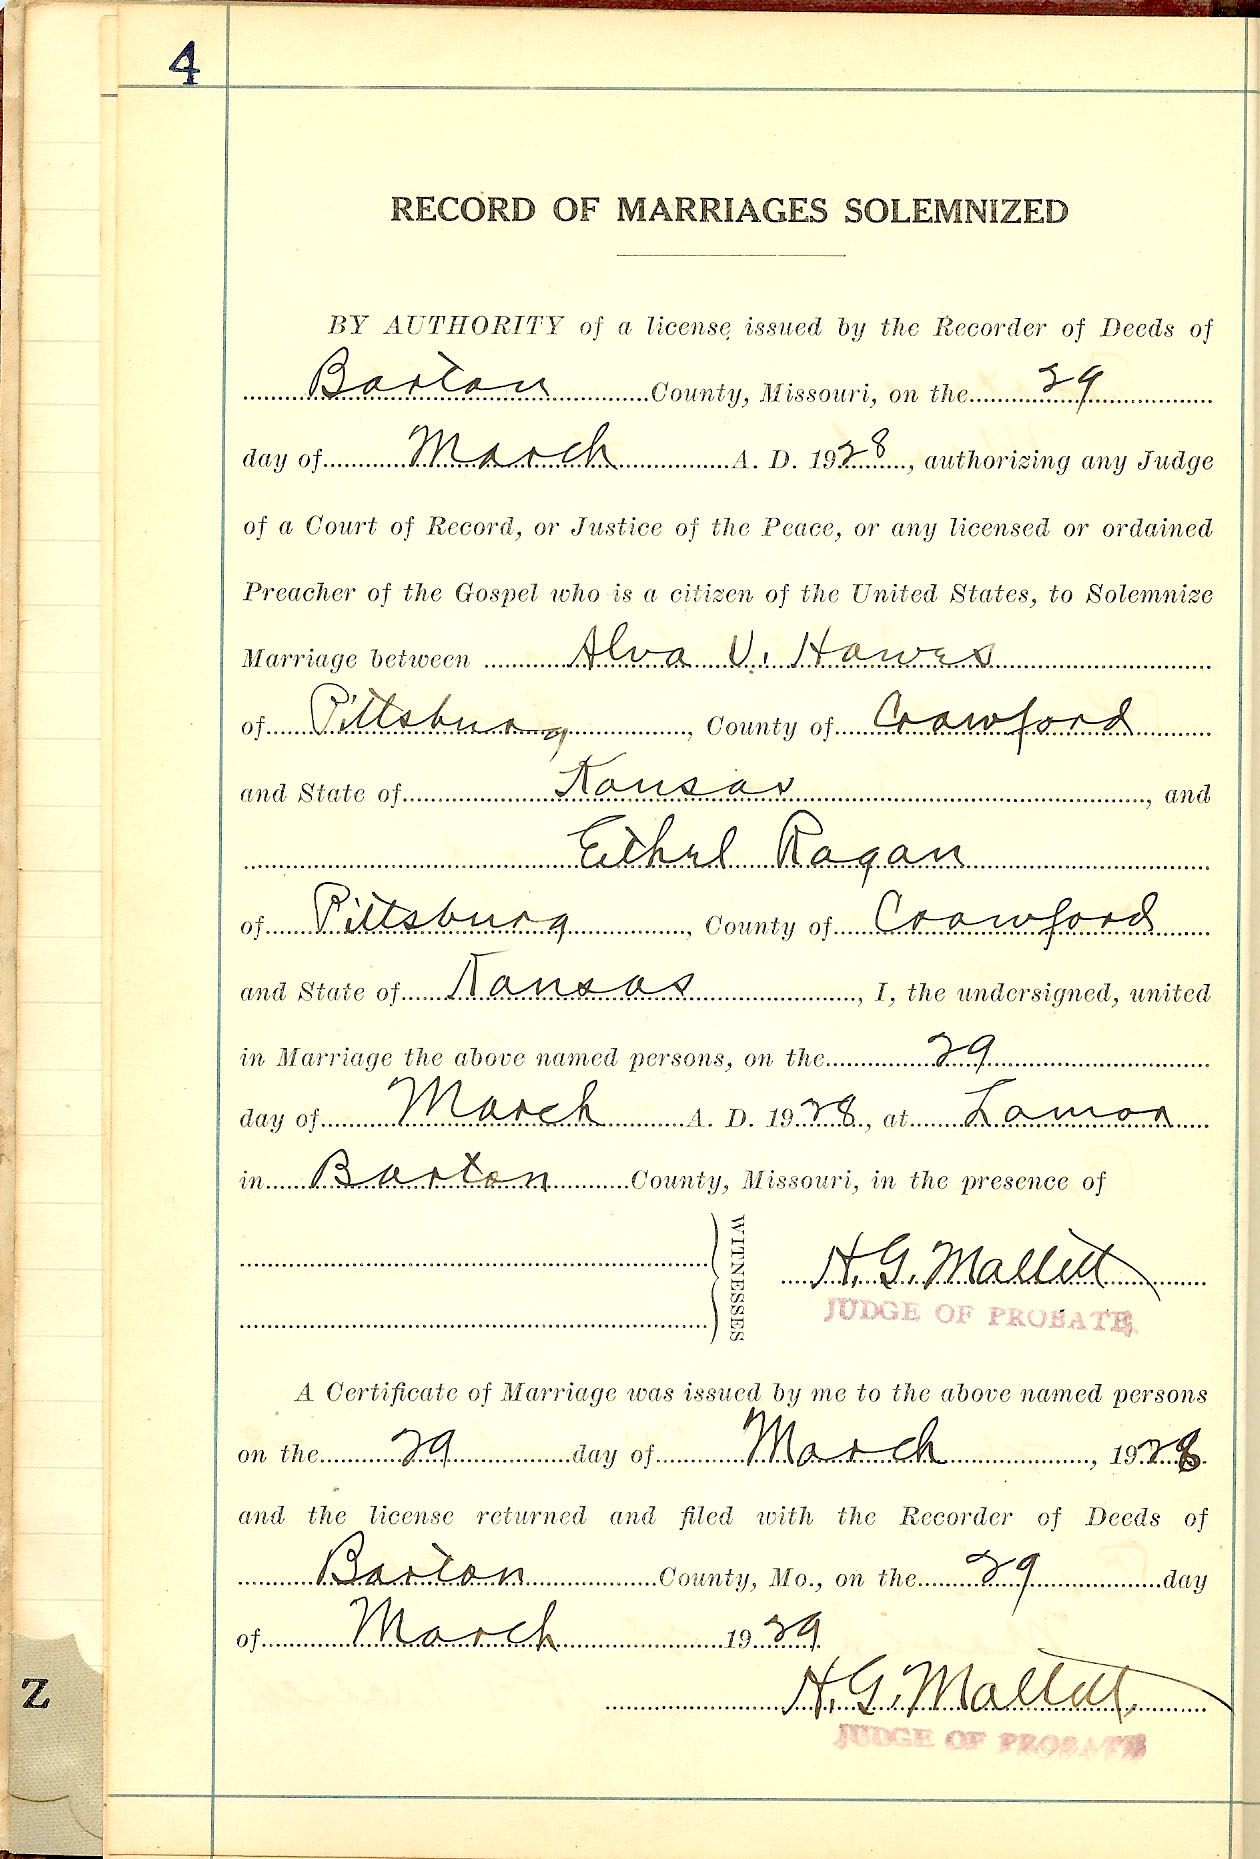 4
RECORD OF MARRIAGES SOLEMNIZED
BY AUTHORITY of a license issued by the Recorder of Deeds of
Barton County, Missouri, on the 29
day of March A. D. 1928, authorizing any Judge
of a Court of Record, or Justice of the Peace, or any licensed or ordained
Preacher of the Gospel who is a citizen of the United States, to Solemnize
Marriage between Alva V. Hawes
of Pittsburg, County of Crawford
and State of Kansas, and
Ethel Ragan
of Pittsburg, County of Crawford
and State of Kansas, I, the undersigned, united
in Marriage the above named persons, on the 29
day of March A. D. 1928, at Lamar
in Barton County, Missouri, in the presence of
WITNESSES
H. G. Mallett
JUDGE OF PROBATE
A Certificate of Marriage was issued by me to the above named persons
on the 29 day of March, 1928
and the license returned and filed with the Recorder of Deeds of
Barton County, Mo., on the 29 day
of March 1929
Z
H. G. Mallett
JUDGE OF PROBATE